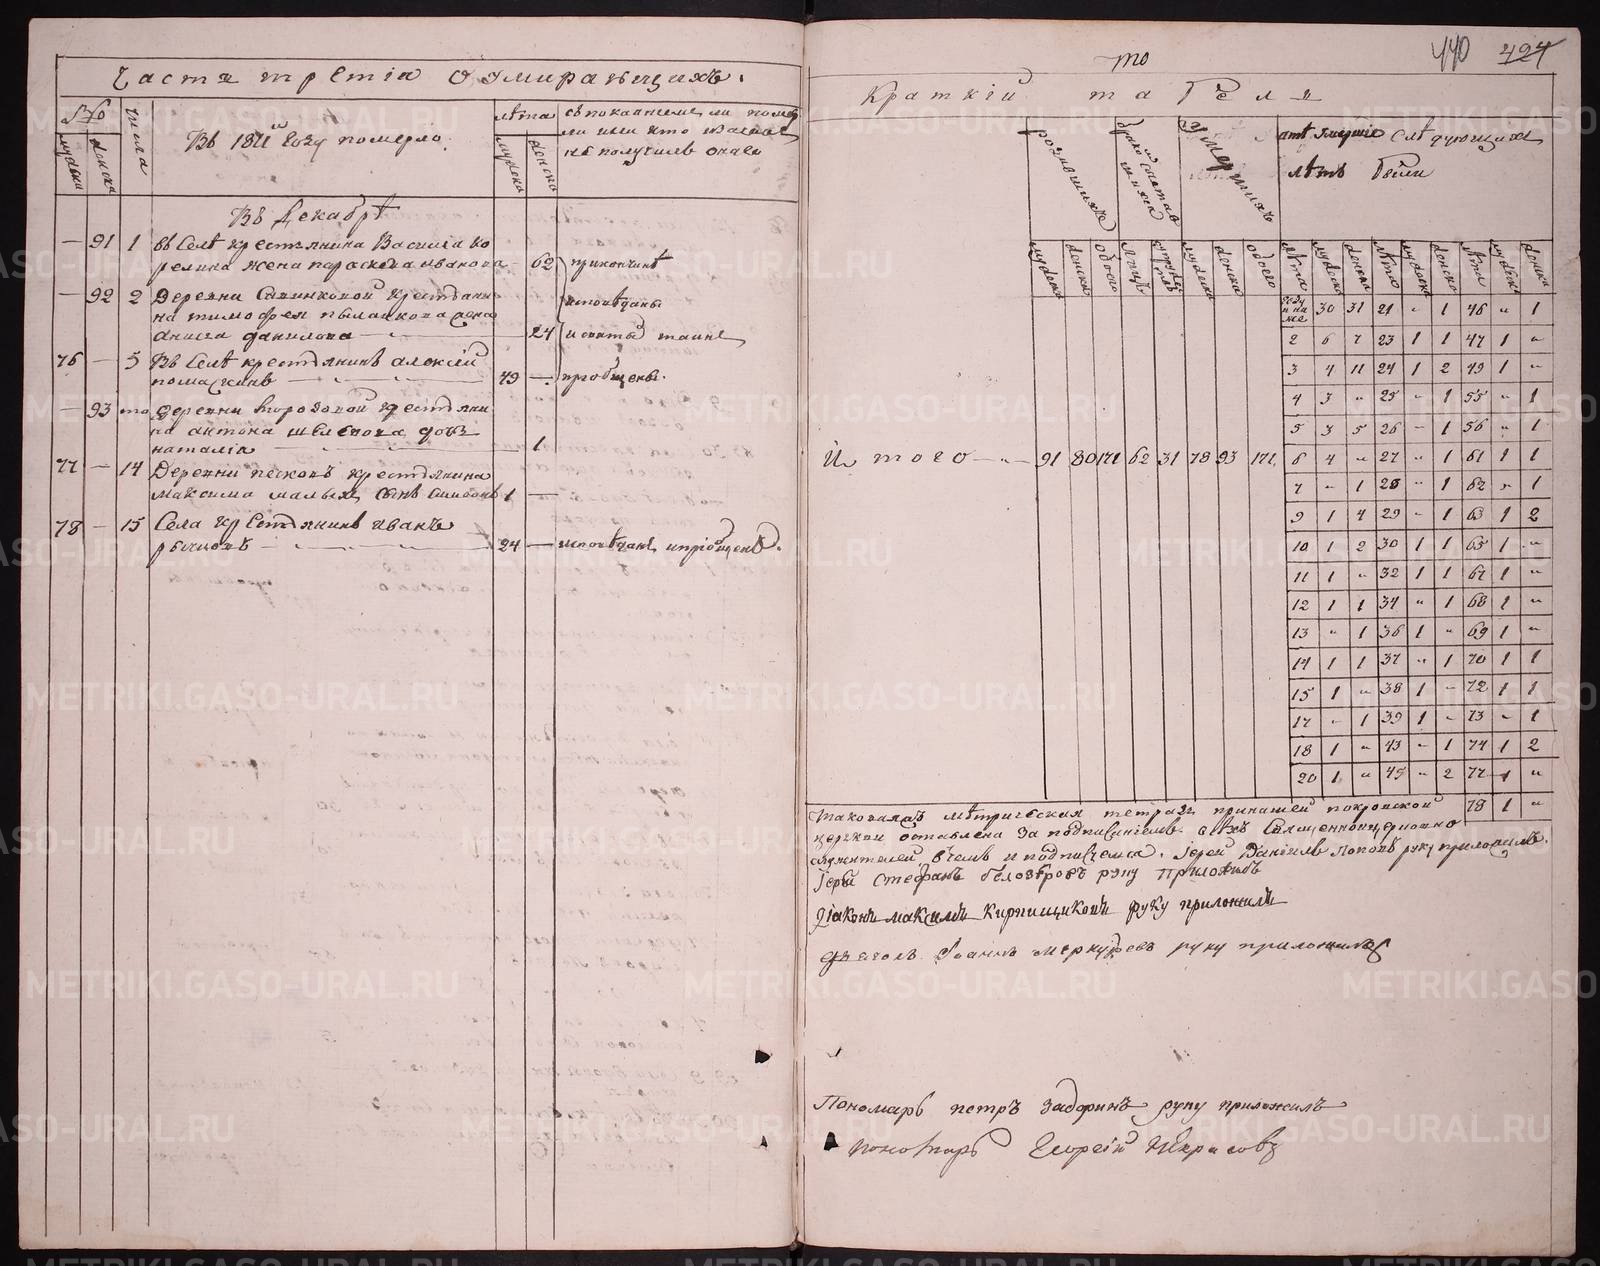 Часть третія о умирающихъ.
№
числа
Въ 1811 году померло
лѣта
съ покаяніемъ ли помер
ли или кто изъ нихъ
не получилъ онаго
мужска
женска
мужска
женска
Въ Декабрѣ
— 91 1 въ Селѣ крестьянина Василія Ко
релина жена параскева иванова — 62 прикончинѣ
— 92 2 Деревни крестьяни
на тимофея жена исповѣданы
даниловa — 24 и святыхъ таинъ
76 — 5 Въ Селѣ крестьянинъ алексѣй
49 — пріобщены.
— 93 то деревни крестьяни
на антона дочь
наталія — 1
77 — 14 Деревни песковъ крестьянина
максима малыхъ сынъ 1 —
78 — 15 Села крестьянинъ иванъ
24 — исповѣданъ и пріобщенъ.
440 424
то
Краткій табель
родившихся
бракосочетавшихся
умершихъ
лѣта умершіе слѣдующихъ
лѣтъ были
мужска женска обоего мужска женска обоего лѣта мужска женска лѣта мужска женска лѣта мужска женска
году и ниже 30 31 21 " 1 46 " 1
2 6 7 23 1 1 47 1 "
3 4 11 24 1 2 49 1 "
4 3 " 25 " 1 55 " 1
5 3 5 26 — 1 56 " 1
Итого — 91 80 171 62 31 78 93 171 6 4 " 27 " 1 61 1 1
7 " 1 28 " 1 62 " 1
9 1 4 29 " 1 63 1 2
10 1 2 30 1 1 65 1 "
11 1 " 32 1 1 67 1 "
12 1 1 34 " 1 68 1 "
13 " 1 36 1 " 69 1 "
14 1 1 37 " 1 70 1 1
15 1 " 38 1 " 72 1 1
17 " 1 39 1 " 73 " 1
18 1 " 43 " 1 74 1 2
20 1 " 45 " 2 77 1 "
78 1 "
Таковая метрическая тетрадь принашей покровской
церкви оставлена за подписаніемъ священноицерковно
служителей вчемъ и подписуемся. Іерей Даніилъ Поповъ руку приложилъ.
Іерей Стефанъ белозеровъ руку приложилъ
Діаконъ максимъ Кирпищиковъ руку приложилъ
дьячокъ Іоаннъ меркурьевъ руку приложилъ
Пономарь петръ Задоринъ руку приложилъ
Пономарь Георгій Некрасовъ
METRIKI.GASO-URAL.RU